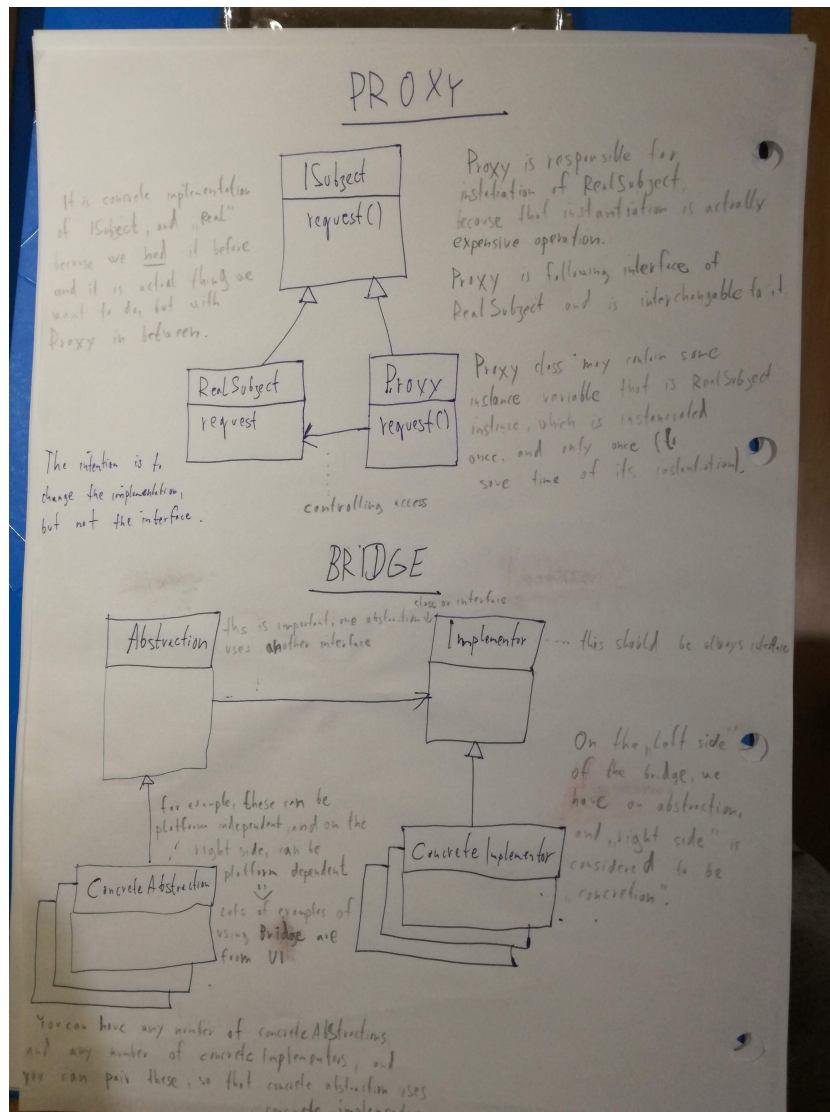 PROXY
It is concrete implementation
of ISubject, and „Real"
because we had it before
and it is actual thing we
want to do, but with
Proxy in between.
ISubject
request()
Proxy is responsible for
instatiation of RealSubject,
because that instantiation is actually
expensive operation.
Proxy is following interface of
RealSubject and is interchangable to it.
RealSubject
request
Proxy
request()
Proxy class may contain some
instance variable that is RealSubject
instance, which is instanciated
once, and only once (to
save time of its instantiation).
The intention is to
change the implementation,
but not the interface.
controlling access
BRIDGE
Abstraction
this is important: one abstraction
uses another interface
class or interface
Implementor
this should be always interface
for example, these can be
platform independent, and on the
right side, can be
platform dependent
Lots of examples of
using Bridge are
from UI
On the „left side"
of the bridge, we
have an abstraction,
and „right side" is
considered to be
„concretion".
ConcreteAbstraction
ConcreteImplementor
You can have any number of concreteAbstractions,
and any number of concreteImplementors, and
you can pair these, so that concrete abstraction uses
concrete